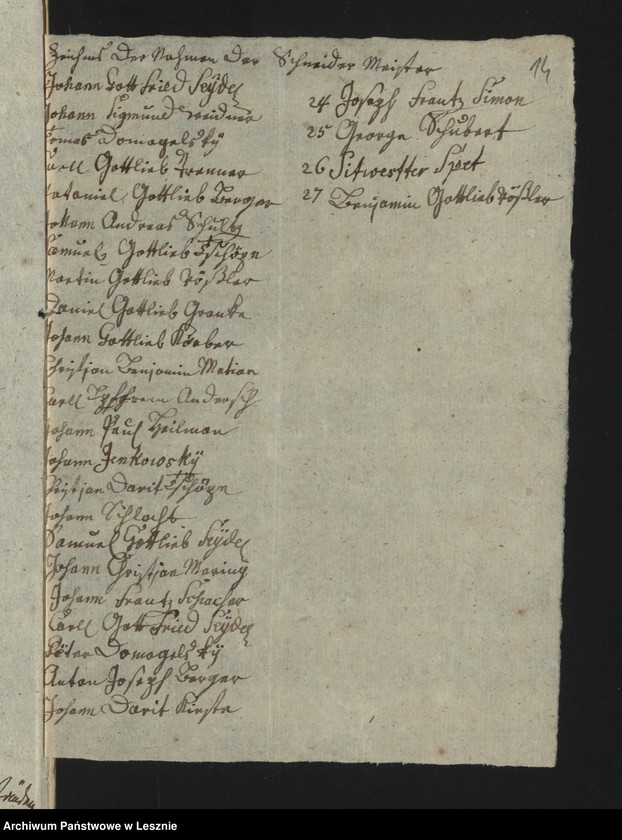 Zeichnis Der Nahmen Der Schneider Meister
14
Johann Gottfried Seÿdel
Johann Sigmund Weidner
Tomas Domagelskÿ
Carll Gottlieb Trenner
Nataniel Gottlieb Berger
Johann Andreas Schultz
Samuel Gottlieb Tschöpe
Martin Gottlieb Rößler
Daniel Gottlieb Granke
Johann Gottlieb Körber
Christjan Benjamin Matian
Carll Andersch
Johann Paul Heilman
Johann Jenkowskÿ
Christjan Davit Tschöpe
Johann Schlacht
Samuel Gottlieb Seÿdel
Johann Christjan Mering
Johann Frantz Schaefer
Carll Gottfried Seÿdel
Peter Domagelskÿ
Anton Joseph Berger
Johann Davit Kirste
24 Joseph Frantz Simon
25 George Schubert
26 Silwestter
27 Benjamin Gottlieb Rößler
Archiwum Państwowe w Lesznie